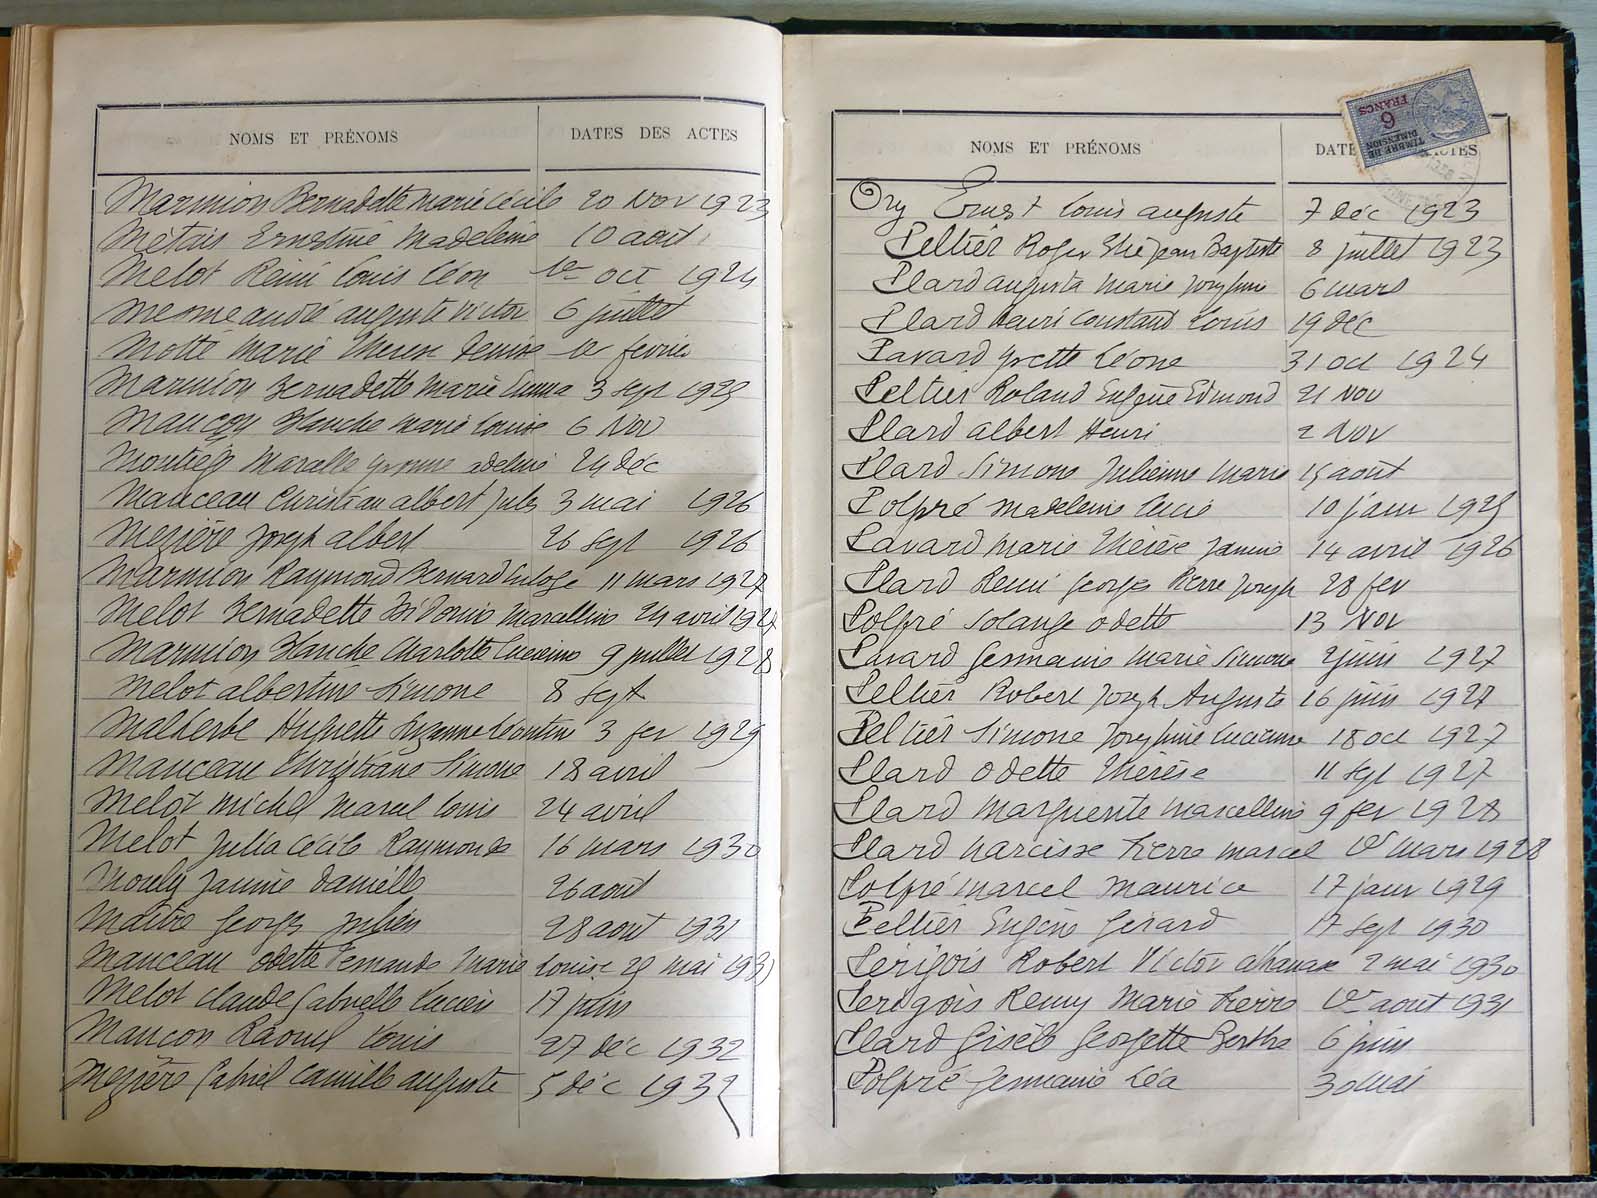 NOMS ET PRÉNOMS DATES DES ACTES
Marmion Bernadette Marie Cécile 20 Nov 1923
Métais Ernestine Madeleine 10 août
Melot Rémi Louis Léon 1er oct 1924
Mesme André auguste Victor 6 juillet
Motté Marie Therese Denise 1er fevrier
Marmion Bernadette Marie Emma 3 Sept 1925
Mançon Blanche Marie Louise 6 Nov
Moutiez Marcelle Yvonne adeline 24 déc
Manceau Christian albert Jules 3 mai 1926
Mezière Joseph albert 26 Sept 1926
Marmion Raymond Bernard 11 mars 1927
Melot Bernadette Marcelline 24 avril 1928
Marmion Blanche Charlotte Lucienne 9 juillet 1928
Melot albertine Simone 8 Sept
Malherbe Huguette Suzanne Léontine 3 fev 1929
Manceau Christiane Simone 18 avril
Melot Michel Marcel Louis 24 avril
Melot Julia Cécile Raymonde 16 mars 1930
Mouly Janine Danielle 26 août
Maître Georges Julien 28 août 1931
Manceau Odette Fernande Marie Louise 29 mai 1931
Melot Claude Gabrielle Lucien 17 juin
Mancon Raoul Louis 27 déc 1932
Mezière Gabriel Camille auguste 5 déc 1932
TIMBRE DE DIMENSION
6 FRANCS
NOMS ET PRÉNOMS DATES ACTES
Ory Ernest Louis auguste 7 déc 1923
Peltier Roger Elie Jean Baptiste 8 juillet 1923
Plard augusta Marie Josephine 6 mars
Plard Henri Constant Louis 19 déc
Pavard Yvette Léone 31 oct 1924
Peltier Roland Eugène Edmond 21 Nov
Plard albert Henri 2 Nov
Plard Simone Julienne Marie 15 août
Polpré Madeleine Lucie 10 janv 1925
Pavard Marie Thérèse Janine 14 avril 1926
Plard Remi Georges Pierre Joseph 28 fev
Polpré Solange Odette 13 Nov
Pavard Germaine Marie Simone 2 juin 1927
Peltier Robert Joseph Auguste 16 juin 1927
Peltier Simone Josephine Lucienne 18 oct 1927
Plard Odette Thérèse 11 Sept 1927
Plard Marguerite Marcelline 9 fev 1928
Plard Narcisse Pierre Marcel 1er mars 1928
Polpré Marcel Maurice 17 janv 1929
Peltier Eugène Gérard 17 Sept 1930
Perigois Robert Victor Athanase 2 mai 1930
Perigois Remy Marie Pierre 1er aout 1931
Plard Gisèle Georgette Berthe 6 juin
Polpré Germaine Léa 30 mai